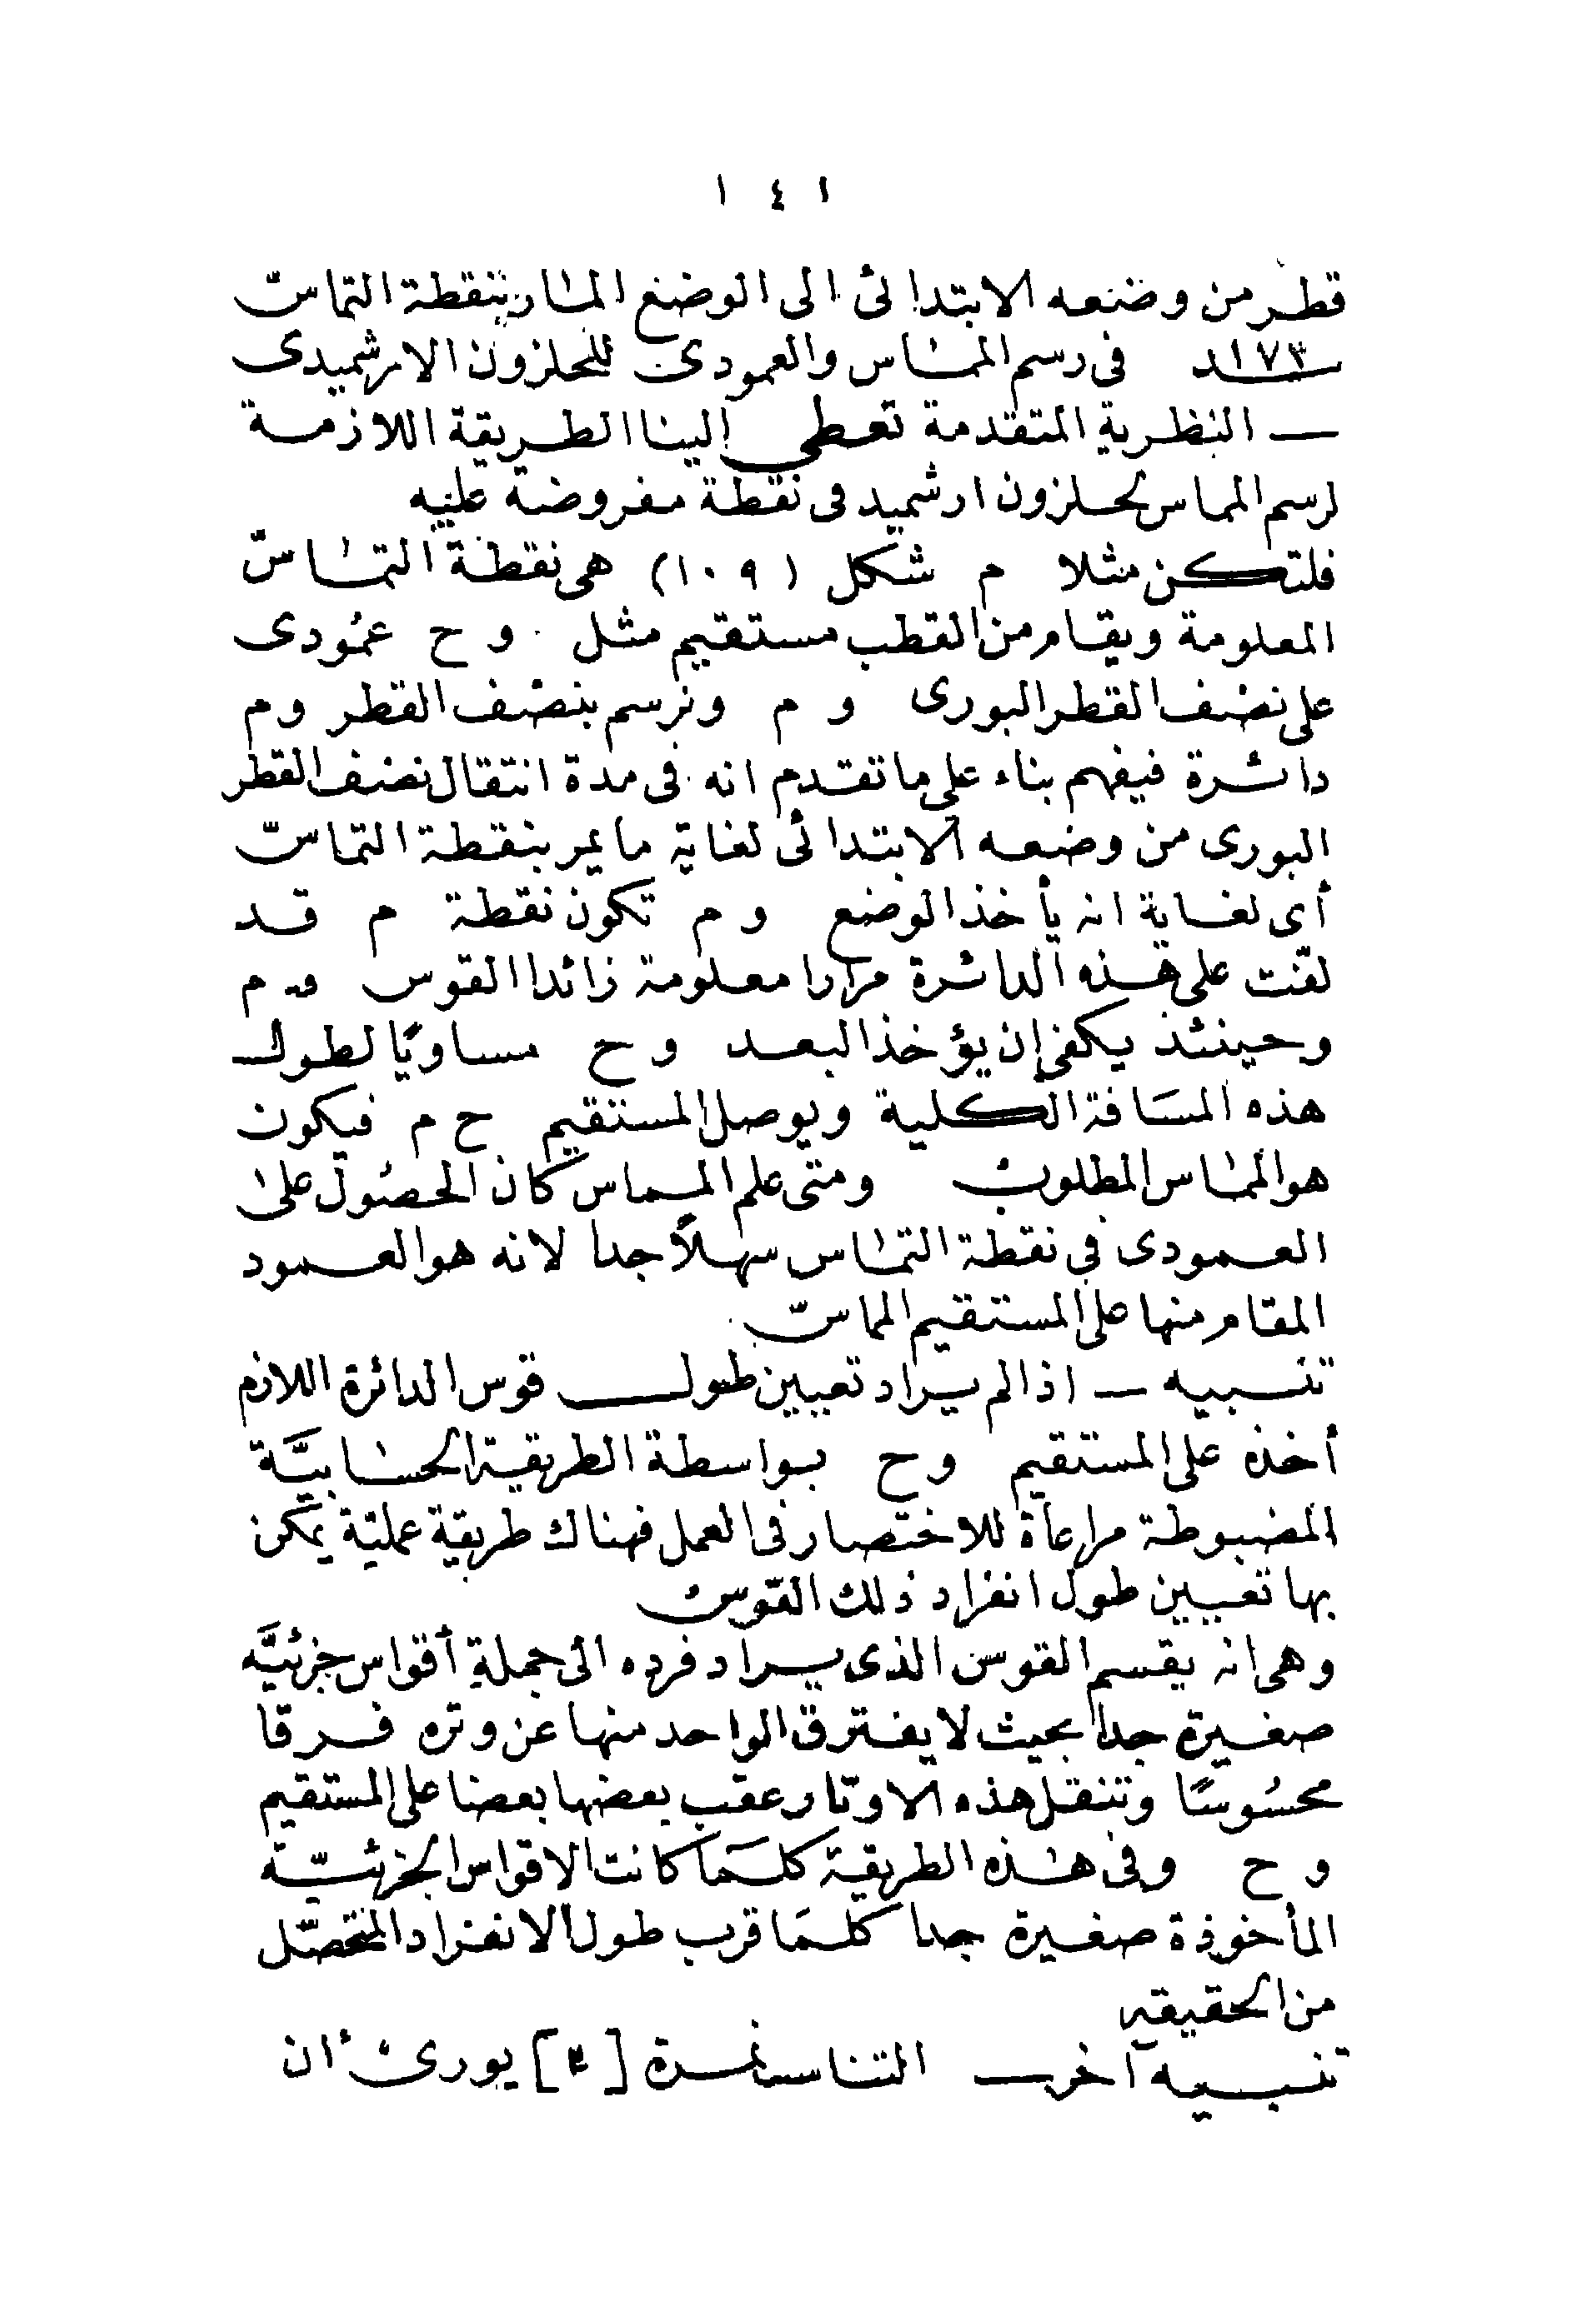 ١٤١
قطر من وضعه الابتدائى الى الوضع المار بنقطة التماس
١٧٣ــد فى رسم المماس والعمودى للحلزون الارشميدى
— النظرية المتقدمة تعطى الينا الطريقة اللازمة
لرسم المماس لحلزون ارشميد فى نقطة مفروضة عليه
فلتكن مثلا م شكل (١٠٩) هى نقطة التماس
المعلومة ويقام من القطب مستقيم مثل وح عمودى
على نصف القطر البورى و م ونرسم بنصف القطر وم
دائرة فيفهم بناء على ما تقدم انه فى مدة انتقال نصف القطر
البورى من وضعه الابتدائى لغاية ما يمر بنقطة التماس
أى لغاية انه يأخذ الوضع و م تكون نقطة م قد
لفت على هذه الدائرة مرارا معلومة زائدا القوس م
وحينئذ يكفى ان يؤخذ البعد وح مساويًا لطول
هذه المسافة الكلية ويوصل المستقيم ح م فيكون
هو المماس المطلوب ومتى علم المماس كان الحصول على
العمودى فى نقطة التماس سهلاً جدا لانه هو العمود
المقام منها على المستقيم المماس
تنبيه — اذا لم يراد تعيين طول قوس الدائرة اللازم
أخذه على المستقيم وح بواسطة الطريقة الحسابيَّة
المضبوطة مراعاة للاختصار فى العمل فهناك طريقة عمليّة يمكن
بها تعيين طول انفراد ذلك القوس
وهى انه يقسم القوس الذى يراد فرده الى جملة أقواس جزئيَّه
صغيرة جدا بحيث لا يفترق الواحد منها عن وتره فرقا
محسُوسًا وتنقل هذه الاوتار عقب بعضها بعضا على المستقيم
وح وفى هذه الطريقة كلمَا كانت الاقواس الجزئيّة
المأخوذة صغيرة جدا كلمَا قرب طول الانفراد المتحصّل
من الحقيقة
تنبيه آخر — التناسب نمرة [٣] يورى أن